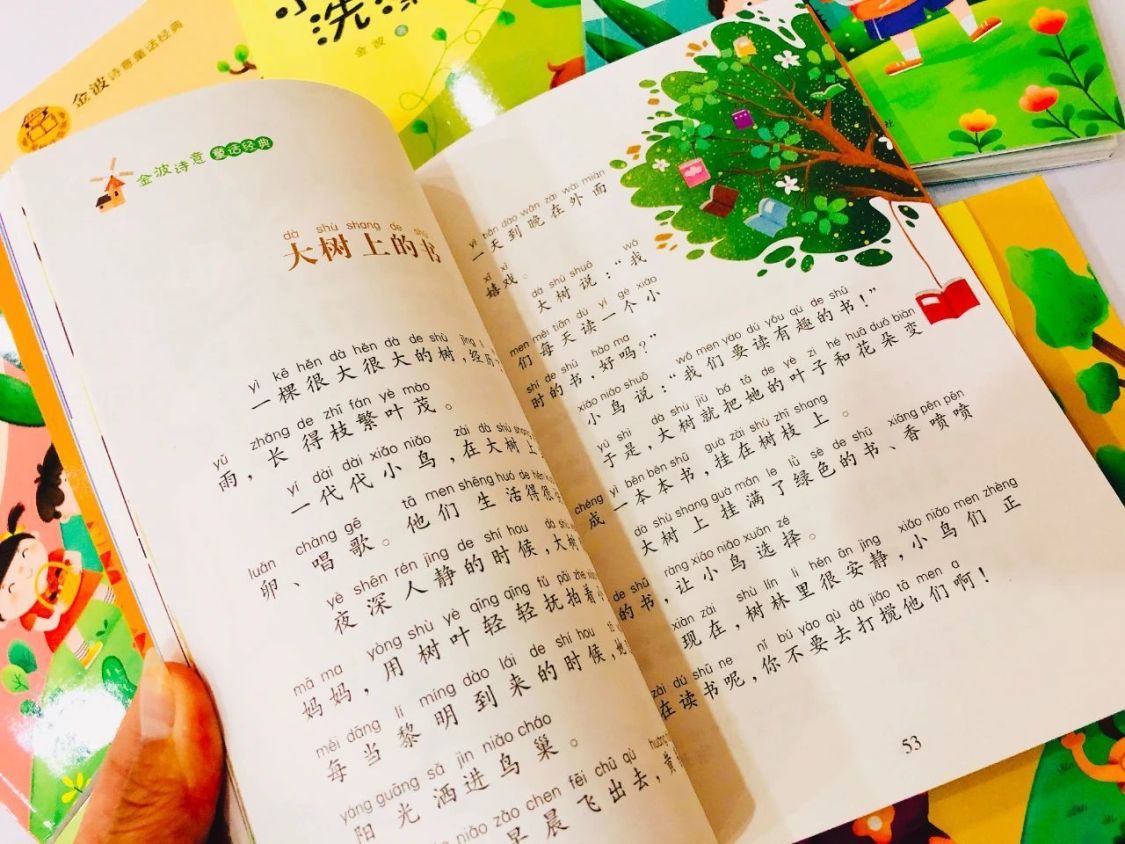 金波诗意童话经典
洗
金波 著
社
金波诗意 童话经典
dà shù shang de
大树上的书
yì kē hěn dà hěn dà de shù
一棵很大很大的树,经历
yǔ zhǎng de zhī fán yè mào
雨,长得枝繁叶茂。
yí dài dài xiǎo niǎo zài dà shù shang
一代代小鸟,在大树上
luǎn chàng gē tā men shēng huó de hěn
卵、唱歌。他们生活得很
yè shēn rén jìng de shí hou
夜深人静的时候,大树
mā ma yòng shù yè qīng qīng fǔ pāi zhe
妈妈,用树叶轻轻抚拍着
měi dāng lí míng dào lái de shí hou
每当黎明到来的时候,
yáng guāng sǎ jìn niǎo cháo
阳光洒进鸟巢。
niǎo zǎo chen fēi chū qù
早晨飞出去,
yì tiān dào wǎn zài wài miàn
一天到晚在外面
xī xì dà shù shuō wǒ
嬉戏。大树说:“我
men měi tiān dú yí gè xiǎo
们每天读一个小
shí de shū hǎo ma
时的书,好吗?”
xiǎo niǎo shuō wǒ men yào dú yǒu qù de shū
小鸟说:“我们要读有趣的书!”
yú shì dà shù jiù bǎ tā de yè zi hé huā duǒ biàn
于是,大树就把她的叶子和花朵变
chéng yì běn běn shū guà zài shù zhī shang
成一本本书,挂在树枝上。
dà shù shang guà mǎn le lǜ sè de shū xiāng pēn pēn
大树上挂满了绿色的书、香喷喷
de shū ràng xiǎo niǎo xuǎn zé
的书,让小鸟选择。
xiàn zài shù lín li hěn ān jìng xiǎo niǎo men zhèng
现在,树林里很安静,小鸟们正
zài dú shū ne nǐ bú yào qù dǎ jiǎo tā men a
在读书呢,你不要去打搅他们啊!
53